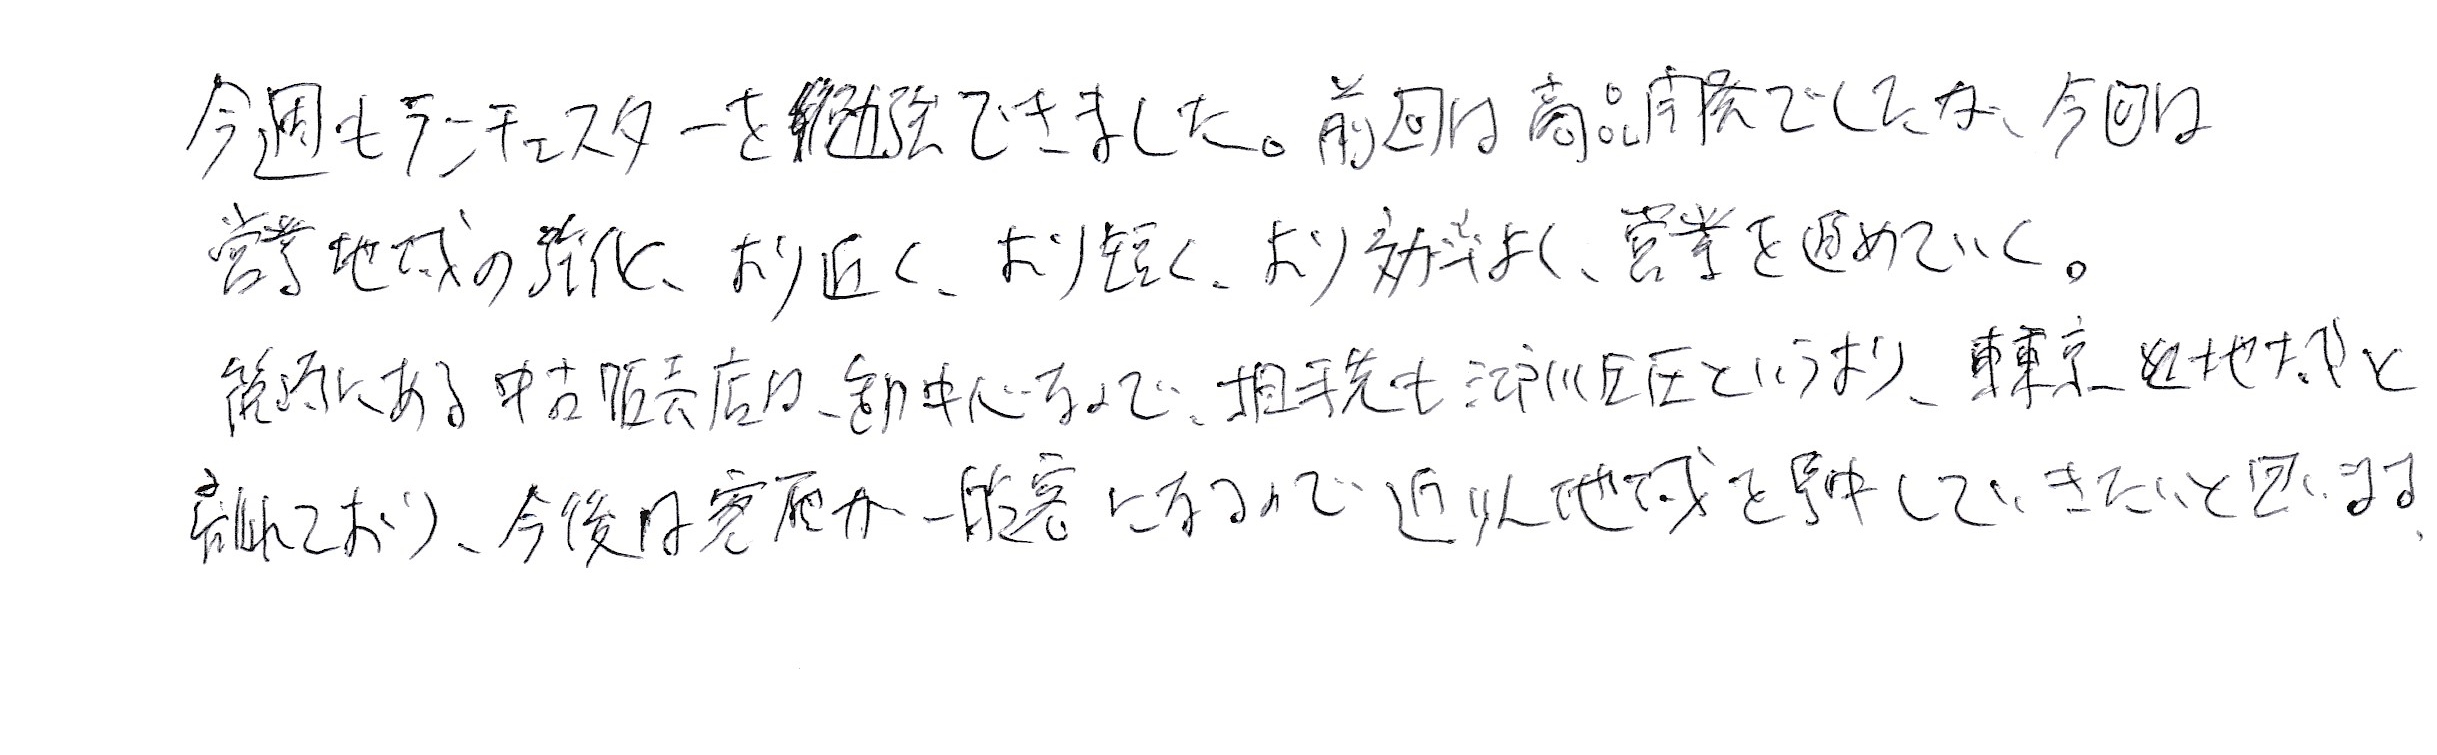 今週もランチェスターを勉強できました。前回は商品開発でしたが、今回は
営業地域の強化、より近く、より短く、より効率よく、営業を進めていく。
にある中古販売店は、卸中心なので、相手先も江戸川区というより、東京 地方と
離れており、今後は客層が一般客になるので近い地域を集中していきたいと思います